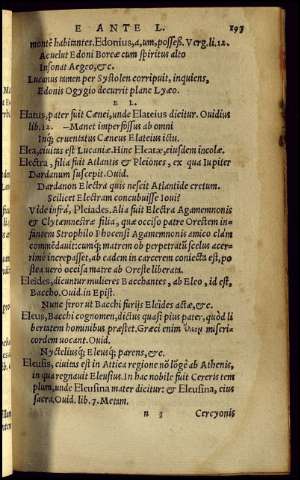 E ANTE L. 193
montē habitantes. Edonius, a, um, possess. Verg. li. 12.
Ac uelut Edoni Boreæ cum spiritus alto
Insonat Aegeo, &c.
Lucanus tamen per Systolen corripuit, inquiens,
Edonis Ogygio decurrit plane Lyæo.
E L.
Elatus, pater fuit Cænei, unde Elateius dicitur. Ouidius
lib. 12. —Manet imperfossus ab omni
Inq; cruentatus Cæneus Elateius ictu.
Elea, ciuitas est Lucaniæ. Hinc Eleatæ, eiusdem incolæ.
Electra, filia fuit Atlantis & Pleiones, ex qua Iupiter
Dardanum suscepit. Ouid.
Dardanon Electra quis nescit Atlantide cretum.
Scilicet Electram concubuisse Ioui?
Vide infrà, Pleiades. Alia fuit Electra Agamemnonis
& Clytemnestræ filia, quæ occiso patre Orestem in-
fantem Strophilo Phocensi Agamemnonis amico clam
commēdauit: cumq; matrem ob perpetratū scelus acer-
rimè increpasset, ab eadem in carcerem coniecta est, po
stea uero occisa matre ab Oreste liberata.
Eleides, dicuntur mulieres Bacchantes, ab Eleo, id est,
Baccho. Ouid. in Epist.
Nunc feror ut Bacchi furijs Eleides actæ, &c.
Eleus, Bacchi cognomen, dictus quasi pius pater, quòd li
bertatem hominibus præstet. Græci enim miseri-
cordem uocant. Ouid.
Nycteliusq; Eleusq; parens, &c.
Eleusis, ciuitas est in Attica regione nō lōgè ab Athenis,
in qua regnauit Eleusius. In hac nobile fuit Cereris tem
plum, unde Eleusina mater dicitur: & Eleusina, eius
sacra. Ouid. lib. 7. Metam.
n 3 Cercyonis